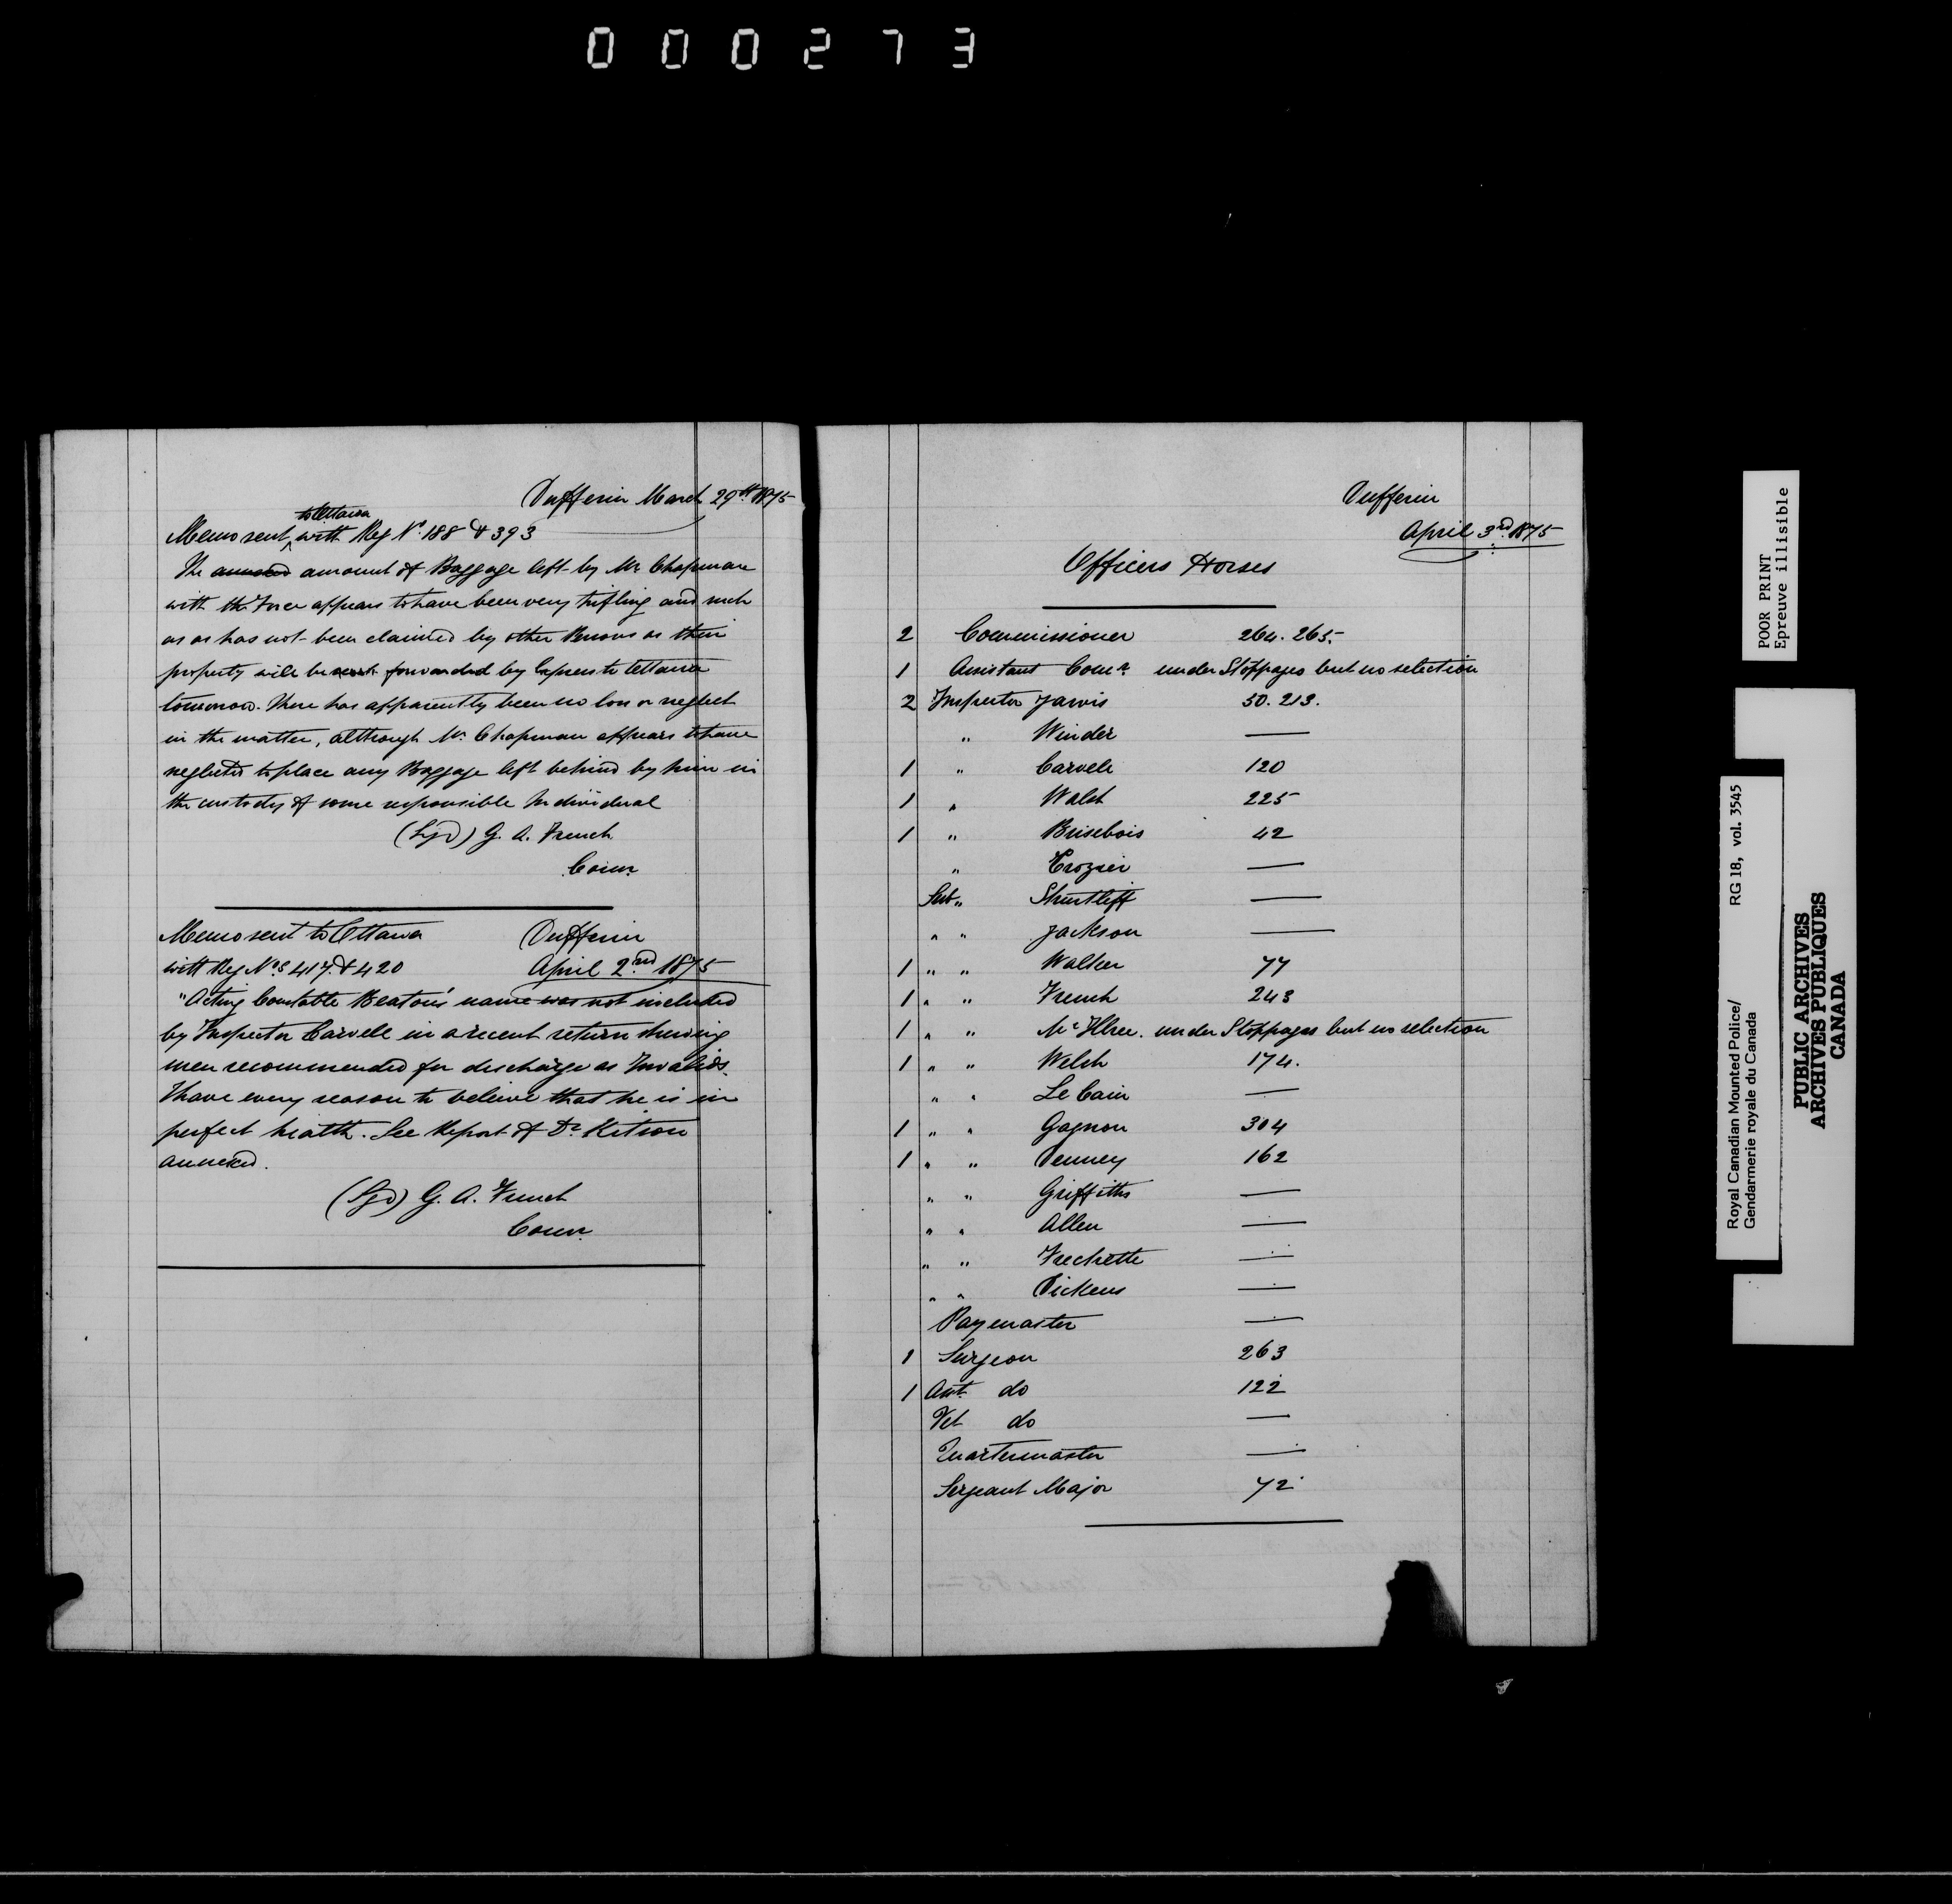 000273
Dufferin March 29th 1875
to Ottawa
Memo sent ^ with Reg No. 188 & 393
The annexed amount of Baggage left by Mr. Chapman
with the Force appears to have been very trifling and such
as as has not been claimed by other Persons as their
property will be sent forwarded by Express to Ottawa
tomorrow. There has apparently been no loss or neglect
in the matter, although Mr. Chapman appears to have
neglected to place any Baggage left behind by him in
the custody of some responsible Individual
(Sgd) G. A. French
Comr.
Memo sent to Ottawa Dufferin
with Reg Nos 417. & 420 April 2nd 1875
"Acting Constable Beaton's name was not included
by Inspector Carvell in a recent return shewing
men recommended for discharge as Invalids.
I have every reason to believe that he is in
perfect health. See Report of Dr. Kitson
annexed.
(Sgd) G. A. French
Comr.
Dufferin
April 3rd. 1875
Officers Horses
2 Commissioner 264. 265
1 Assistant Comr. under Stoppages but no selection
2 Inspector Jarvis 50. 213.
" Winder —
1 " Carvell 120
1 " Walsh 225
1 " Brisebois 42
" Crozier —
Sub " Shurtliff —
" " Jackson —
1 " " Walker 77
1 " " French 243
1 " " McIllree. under Stoppages but no selection
1 " " Welch 174.
" " Le Cain —
1 " " Gagnon 304
1 " " Denney 162
" " Griffiths —
" " Allen —
" " Frechette —
" " Dickens —
Paymaster —
1 Surgeon 263
1 Asst. do 122
Vet do —
Quartermaster —
Sergeant Major 72
POOR PRINT
Epreuve illisible
Royal Canadian Mounted Police/ RG 18, vol. 3545
Gendarmerie royale du Canada
PUBLIC ARCHIVES
ARCHIVES PUBLIQUES
CANADA